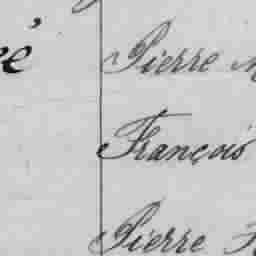 Pierre
François
Pierre